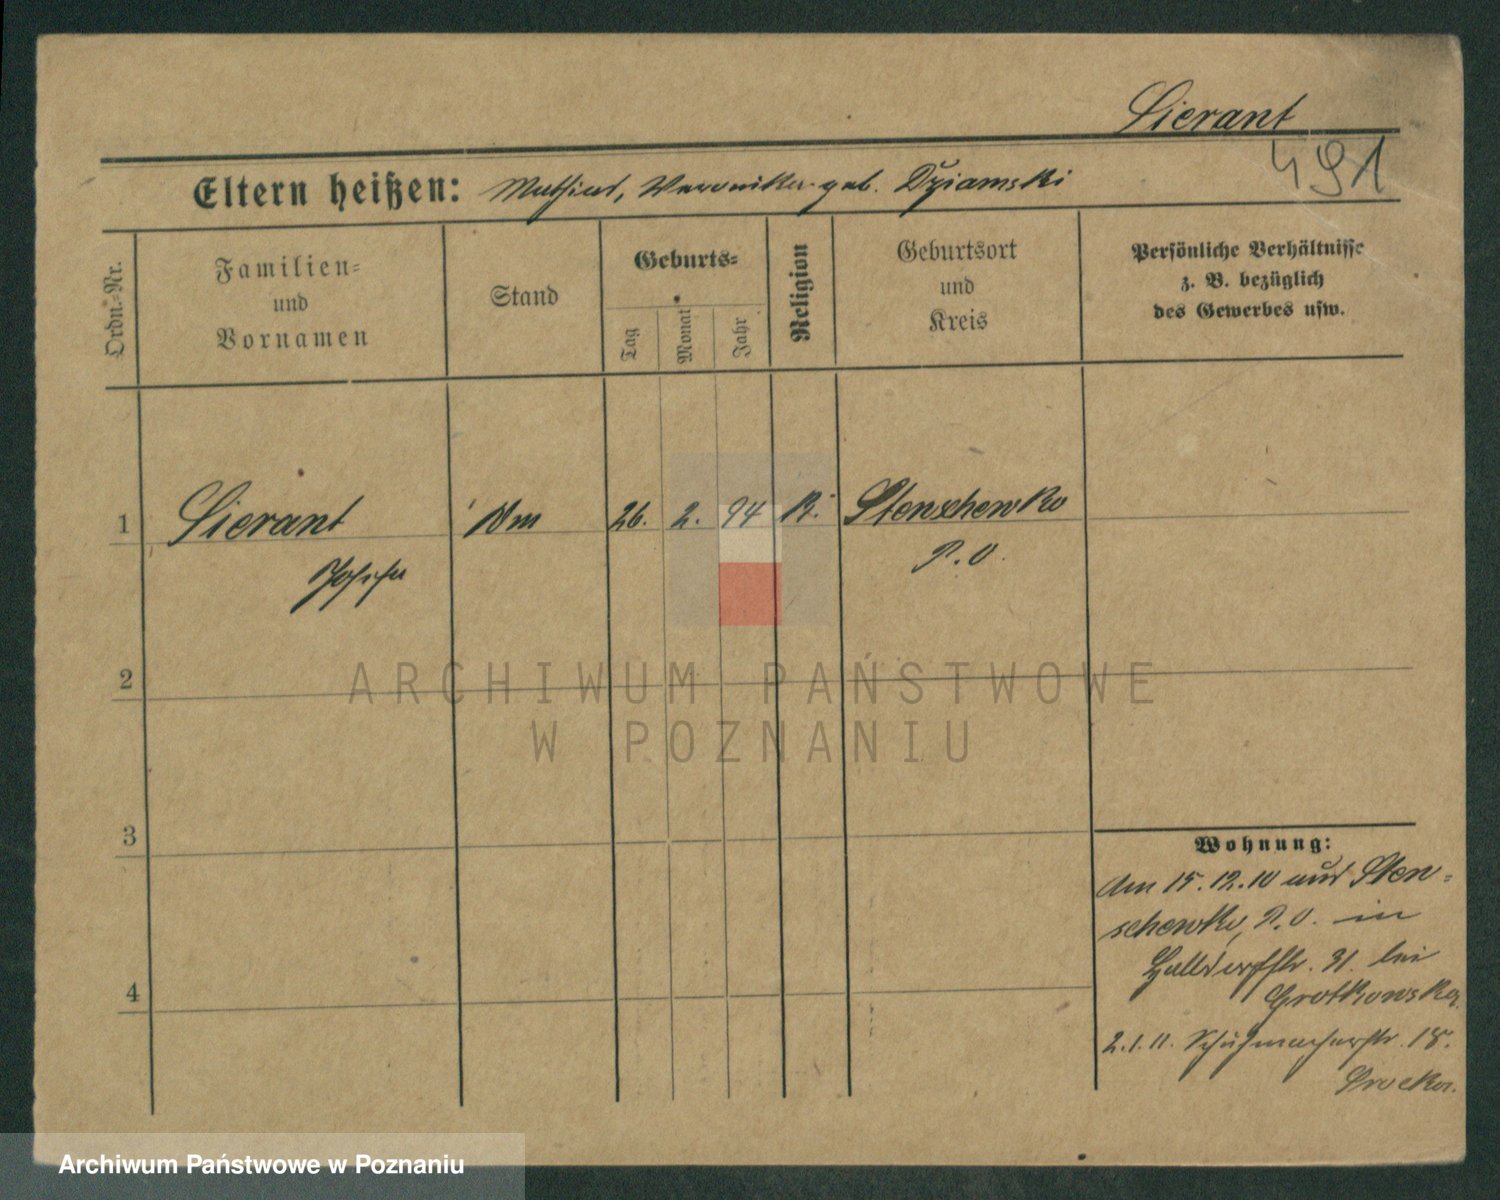 Sierant
491
Eltern heißen: Mathias, Veronika geb. Dziamski
Ordn.-Nr.
Familien-
und
Vornamen
Stand
Geburts-
Tag
Monat
Jahr
Religion
Geburtsort
und
Kreis
Persönliche Verhältnisse
z. B. bezüglich
des Gewerbes usw.
1 Sierant 26. 2. 94 K. Stenschewko
Josefa P. O.
2
3
4
Wohnung:
Am 15.12.10 aus Sten-
schewko, P.O. in
31. bei
Grotkowska
2.1.11. Schuhmacherstr. 18.
ARCHIWUM PAŃSTWOWE
W POZNANIU
Archiwum Państwowe w Poznaniu